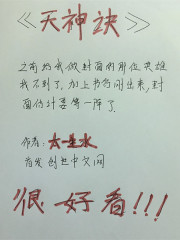 《天神诀》
之前给我做封面的那位英雄
找不到了，加上书名刚出来，封
面估计要等一阵了。
作者：太墨水
首发创世中文网
很好看!!!